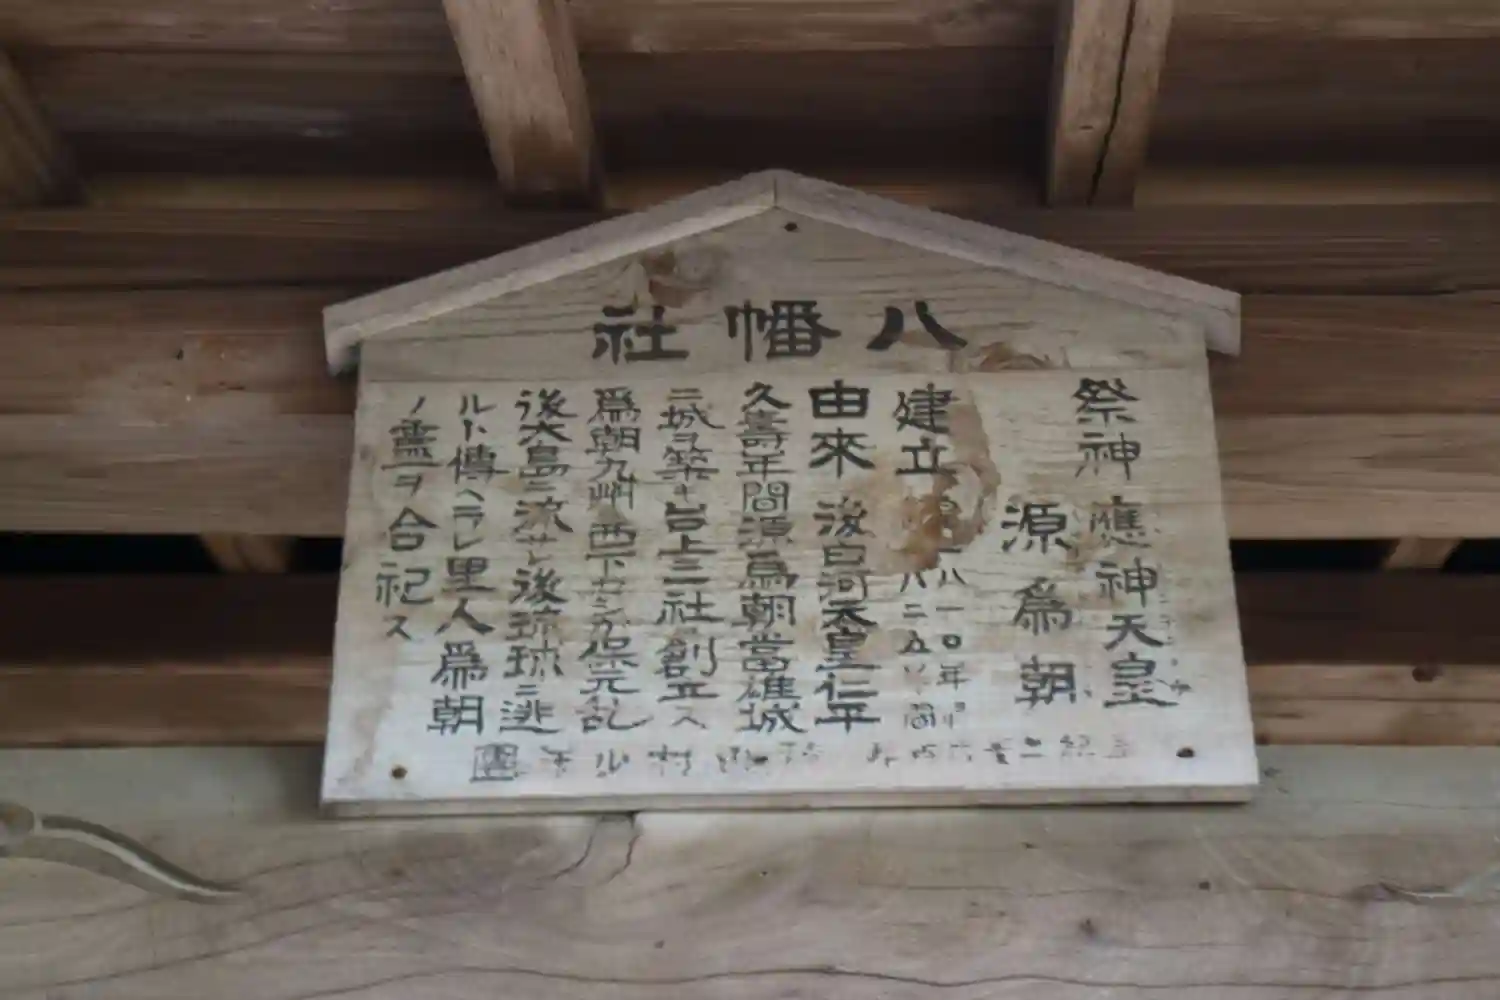 八幡社
祭神 應神天皇
源為朝
建立
一八一〇年
八二五年間
由來 後白河天皇仁平
久壽年間源爲朝當雄城
ニ城ヲ築キ台上ニ社ヲ創立ス
爲朝九州西下カシガ保元乱
後大島ニ流サレ後琉球ニ逃
ルト傳ヘラレ里人爲朝
ノ靈ヲ合祀ス